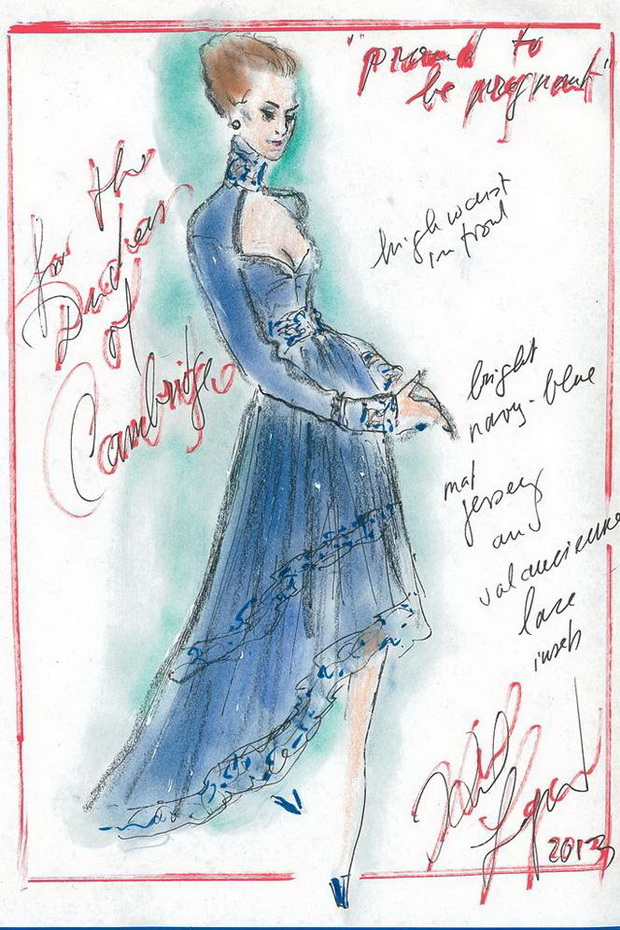 "proud to
be pregnant"
for the
Duchess
of
Cambridge
high waist
in front
bright
navy-blue
mat
jersey
and
valancienne
lace
insets
Karl
Lagerfeld
2013